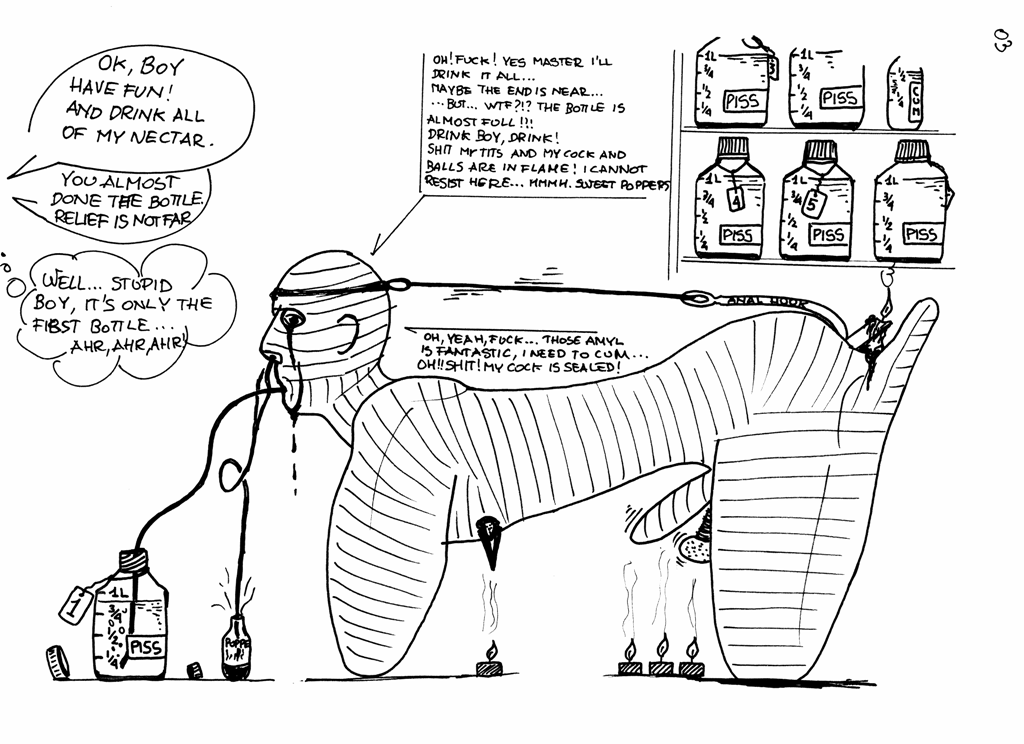 03
OK, BOY
HAVE FUN!
AND DRINK ALL
OF MY NECTAR.
YOU ALMOST
DONE THE BOTTLE.
RELIEF IS NOT FAR
WELL... STUPID
BOY, IT'S ONLY THE
FIRST BOTTLE...
AHR, AHR, AHR!
OH! FUCK! YES MASTER I'LL
DRINK IT ALL...
MAYBE THE END IS NEAR...
...BUT... WTF?!? THE BOTTLE IS
ALMOST FULL!!!
DRINK BOY, DRINK!
SHIT MY TITS AND MY COCK AND
BALLS ARE IN FLAME! I CANNOT
RESIST HERE... MMMH. SWEET POPPERS
1L
3/4
1/2
1/4
PISS
3
1L
3/4
1/2
1/4
PISS
1/2
1/4
CUM
1L
3/4
1/2
1/4
PISS
4
1L
3/4
1/2
1/4
PISS
5
1L
3/4
1/2
1/4
PISS
ANAL HOOK
OH, YEAH, FUCK... THOSE AMYL
IS FANTASTIC, I NEED TO CUM...
OH!! SHIT! MY COCK IS SEALED!
1
1L
3/4
1/2
1/4
PISS
POPPE